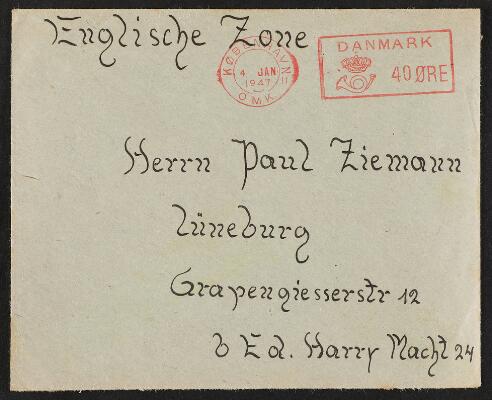 Englische Zone
KØBENHAVN
4 JAN
1947
OMK
DANMARK
40 ØRE
Herrn Paul Ziemann
Lüneburg
Grapengiesserstr 12
b Ed. Harry Macht 24